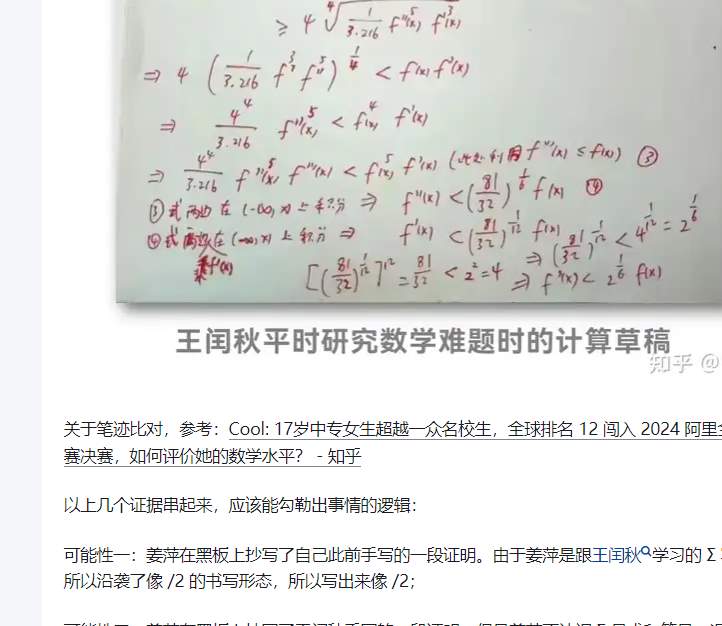 ≥ 4 ∜(1/3.216 f''⁵(x) f'³(x))
⇒ 4 (1/3.216 f'³ f''⁵)^(1/4) < f(x) f'(x)
⇒ 4⁴/3.216 f''⁵(x) < f⁴(x) f'(x)
⇒ 4⁴/3.216 f''⁵(x) f'''(x) < f⁵(x) f'(x) (此处利用 f'''(x) ≤ f(x)) ③
③式两边在 (-∞, x) 上积分 ⇒ f''(x) < (81/32)^(1/6) f(x) ④
④式两边在 (-∞, x) 上积分 ⇒ f'(x) < (81/32)^(1/12) f(x) ⇒ (81/32)^(1/12) < 4^(1/12) = 2^(1/6)
乘f'(x)
[(81/32)^(1/12)]¹² = 81/32 < 2² = 4 ⇒ f'(x) < 2^(1/6) f(x)
王闰秋平时研究数学难题时的计算草稿
知乎 @
关于笔迹比对，参考：Cool: 17岁中专女生超越一众名校生，全球排名 12 闯入 2024 阿里
赛决赛，如何评价她的数学水平？ - 知乎
以上几个证据串起来，应该能勾勒出事情的逻辑：
可能性一：姜萍在黑板上抄写了自己此前手写的一段证明。由于姜萍是跟王闰秋学习的 Σ
所以沿袭了像 /2 的书写形态，所以写出来像 /2；